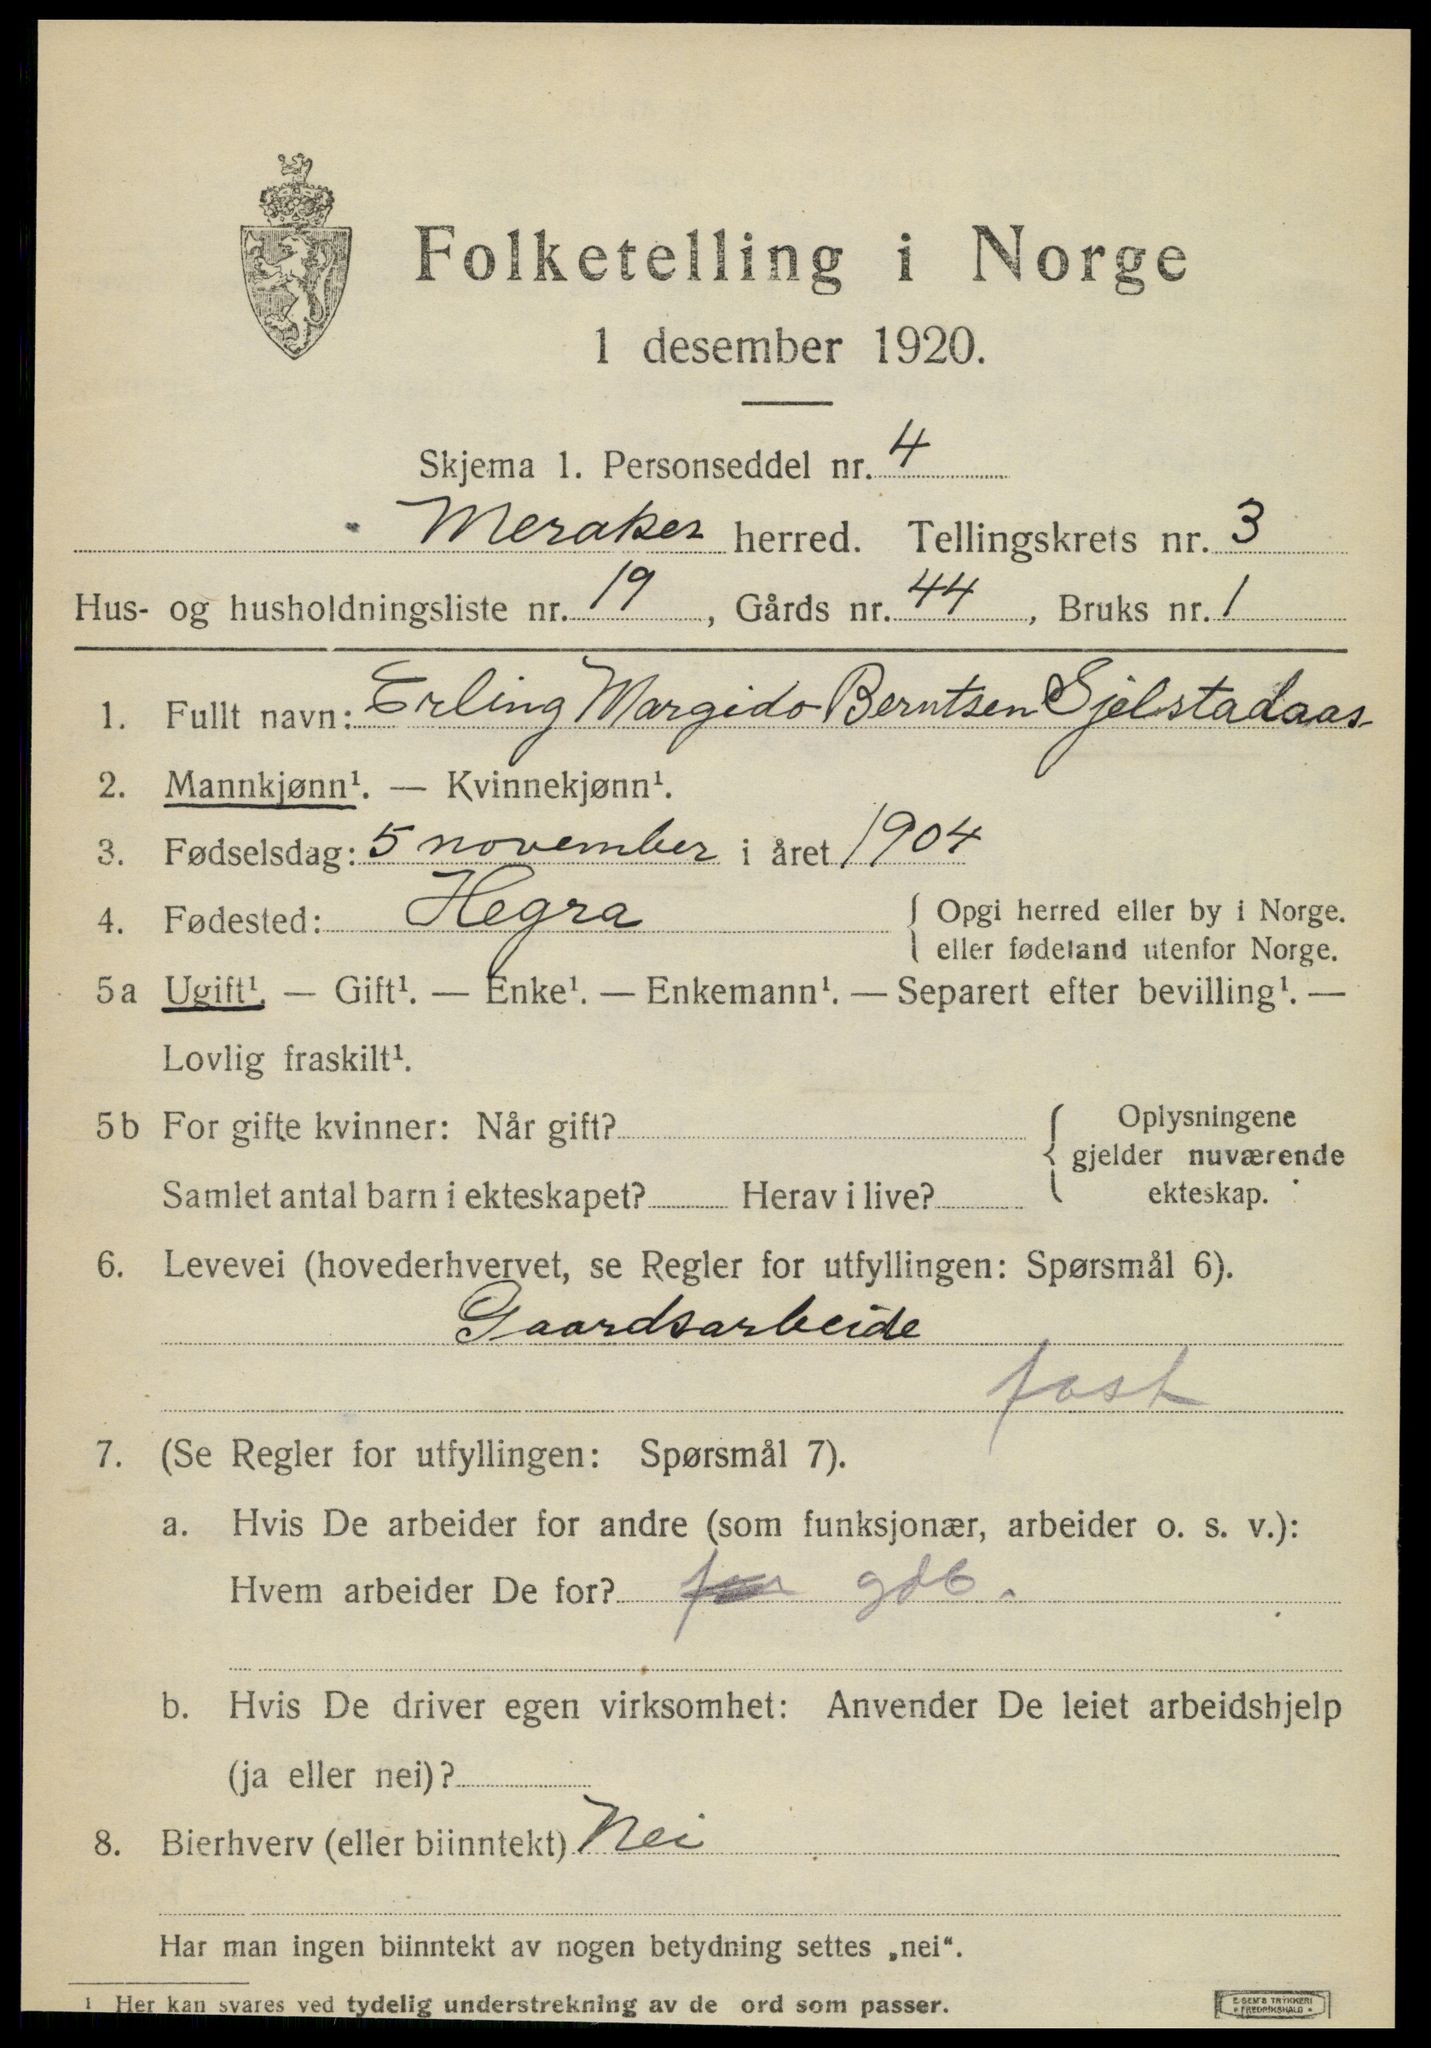 Folketelling i Norge
1 desember 1920.
Skjema 1. Personseddel nr. 4
Meraker herred. Tellingskrets nr. 3
Hus- og husholdningsliste nr. 19, Gårds nr. 44, Bruks nr. 1
1. Fullt navn: Erling Margido Berntsen Gjelstadaas
2. Mannkjønn¹. — Kvinnekjønn¹.
3. Fødselsdag: 5 november i året 1904
4. Fødested: Hegra { Opgi herred eller by i Norge.
eller fødeland utenfor Norge.
5a Ugift¹. — Gift¹. — Enke¹. — Enkemann¹. — Separert efter bevilling¹. —
Lovlig fraskilt¹.
5b For gifte kvinner: Når gift?
Samlet antal barn i ekteskapet? Herav i live?
{ Oplysningene
gjelder nuværende
ekteskap.
6. Levevei (hovederhvervet, se Regler for utfyllingen: Spørsmål 6).
Gaardsarbeide
fast
7. (Se Regler for utfyllingen: Spørsmål 7).
a. Hvis De arbeider for andre (som funksjonær, arbeider o. s. v.):
Hvem arbeider De for? gdb.
b. Hvis De driver egen virksomhet: Anvender De leiet arbeidshjelp
(ja eller nei)?
8. Bierhverv (eller biinntekt) Nei
Har man ingen biinntekt av nogen betydning settes „nei“.
1 Her kan svares ved tydelig understrekning av de ord som passer.
E. SEM'S TRYKKERI
FREDRIKSHALD